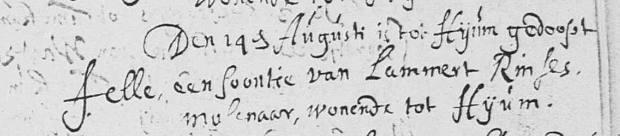 Den 14 Augusti is tot Hijum gedoopt
Jelle, een soontie van Lammert Rinses,
molenaar, wonende tot Hijum.